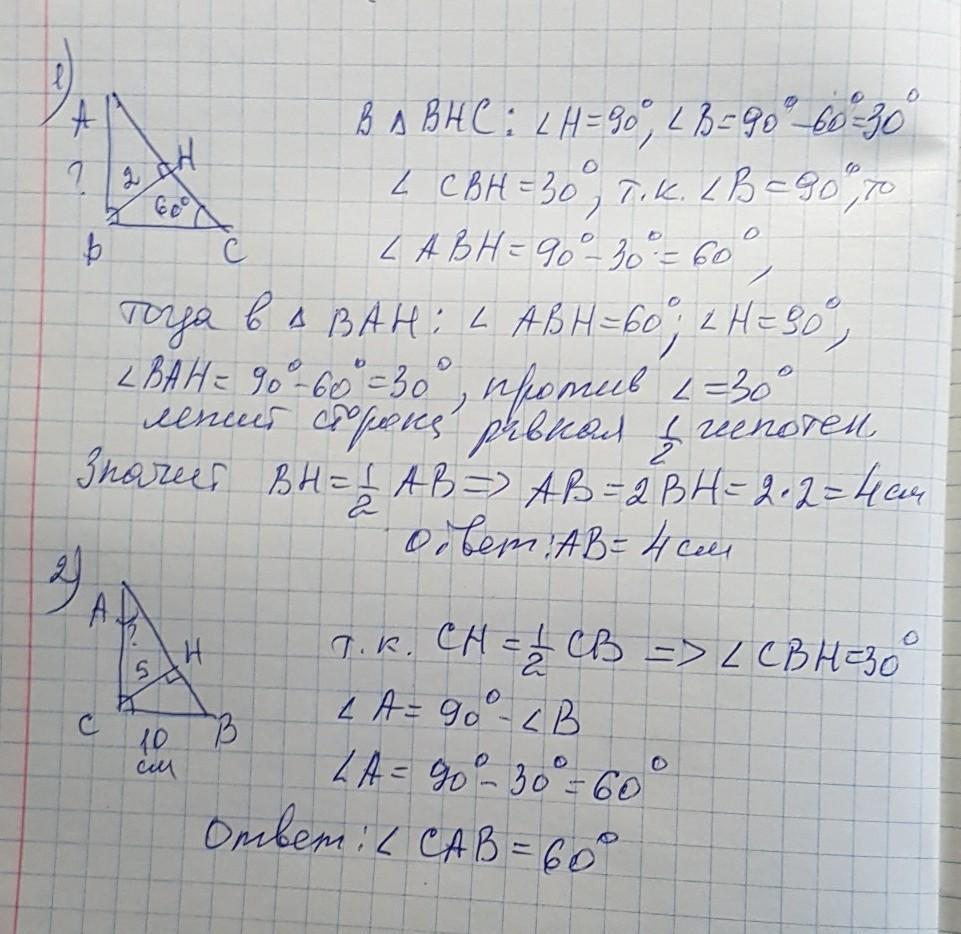 1)
A
H
? 2
60°
B
C
В △ BHC: ∠H=90°, ∠B=90°-60°=30°
∠ CBH=30°, т.к. ∠B=90°, то
∠ ABH=90°-30°=60°,
тогда в △ BAH: ∠ ABH=60°; ∠H=90°,
∠BAH=90°-60°=30°, против ∠=30°
лежит сторона, равная 1/2 гипотен.
Значит BH=1/2 AB=> AB=2BH=2·2=4см
Ответ: AB=4см
2)
A
?
H
5
C
B
10
см
т.к. CH=1/2 CB => ∠CBH=30°
∠A=90°-∠B
∠A=90°-30°=60°
Ответ: ∠ CAB=60°